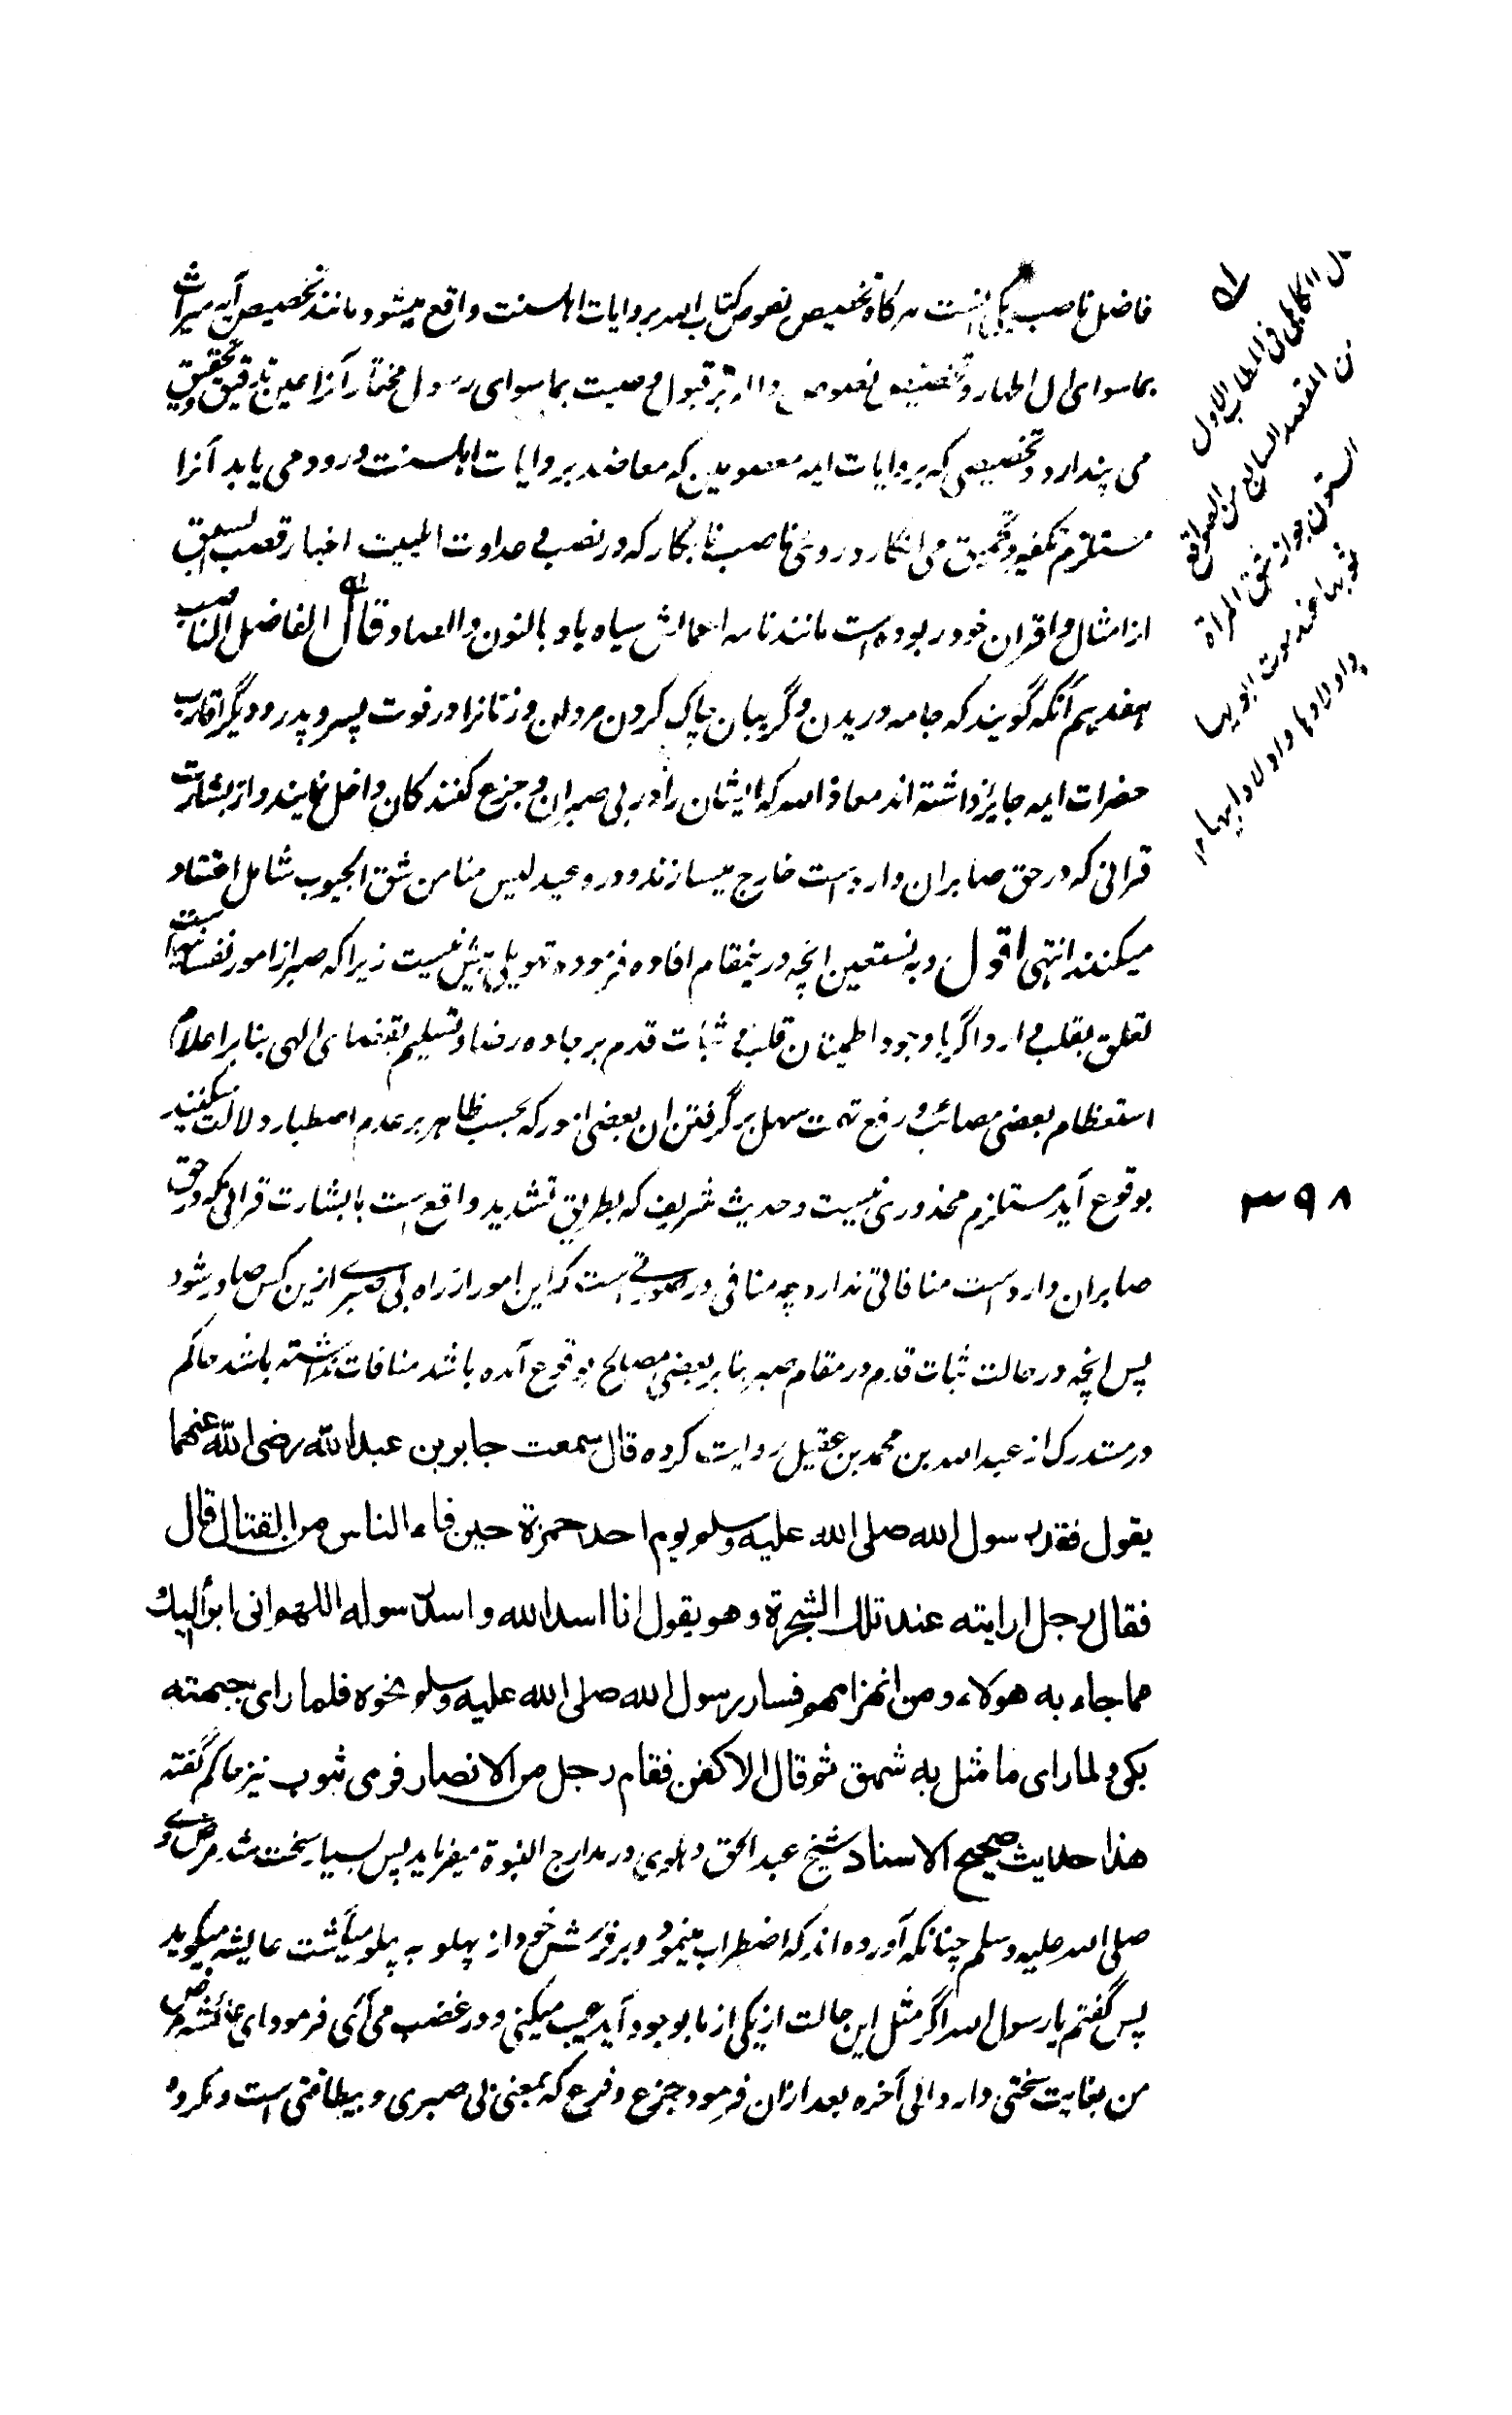 فاضل ناصب یکی نیست هرگاه تخصیص نصوص کتاب الله بروایات اهلسنت واقع میشود مانند تخصیص آیه میراث
بماسوای ال اطهار و تخصیص نصوص قبول وصیت بماسوای رسول مختار آنرا عین تدقیق و تحقیق
می پندارد و تخصیصی که بروایات ایمه معصومین که معاضد بروایات اهلسنت ورود می یابد آنرا
مستلزم تکفیر و تحمیق می انگارد و روی ناصب نابکار که در نصب و عداوت اهلبیت اخیار قصب السبق
از امثال و اقران خود ربوده است مانند نامه اعمالش سیاه باد بالنون و الصاد قال الفاضل الناصب
هفدهم آنکه گویند که جامه دریدن و گریبان چاک کردن مردان و زنانرا در فوت پسر و پدر و دیگر اقارب
حضرات ایمه جایز داشته اند معاذ الله که ایشان را در بی صبران و جزع کنندگان داخل نمایند و از بشارت
قرانی که در حق صابران وارد است خارج میسازند و در وعید لیس منا من شق الجیوب شامل اعتقاد
میکنند انتهی اقول و به نستعین انچه درینمقام افاده فرموده تهویلی بیش نیست زیرا که صبر از امور نفسانیه است
تعلق بقلب دارد اگر با وجود اطمینان قلب و ثبات قدم بر جاده رضا و تسلیم بقضای الهی بنابر اعلام
استعظام بعضی مصائب و رفع تهمت سهل برگرفتن ان بعضی امور که بحسب ظاهر بر عدم اصطبار دلالت میکنند
بوقوع آید مستلزم محذوری نیست و حدیث شریف که بطریق تشدید واقع است با بشارت قرانی که در حق
صابران وارد است منافاتی ندارد چه منافی در صورتی است که این امور از راه بی صبری ازین کس صادر شود
پس انچه در حالت ثبات قدم در مقام صبر بنابر بعضی مصالح بوقوع آمده باشد منافات نداشته باشد حاکم
در مستدرک از عبد الله بن محمد بن عقیل روایت کرده قال سمعت جابر بن عبد الله رضی الله عنهما
یقول فقد رسول الله صلی الله علیه وسلم یوم احد حمزة حین فاء الناس من القتال قال
فقال رجل رایته عند تلک الشجرة وهو یقول انا اسد الله و اسد رسوله اللهم انی ابرأ الیک
مما جاء به هولاء ومن انهزامهم فسار رسول الله صلی الله علیه وسلم نحوه فلما رای جبهته
بکی و لما رای ما مثل به شهق ثم قال الا کفن فقام رجل من الانصار فرمی بثوب نیز حاکم گفته
هذا حدیث صحیح الاسناد شیخ عبد الحق دهلوی در مدارج النبوة میفرماید پس بسیار سخت شد مرض وی
صلی الله علیه وسلم چنانکه آورده اند که اضطراب مینمود و بر فرش خود از پهلو به پهلو میگشت عایشه میگوید
پس گفتم یا رسول الله اگر مثل این حالت از یکی از ما بوجود آید عیب میکنی و در غضب می آئی فرمود ای عائشه مرض
من بغایت سختی دارد الی آخره بعد ازان فرمود جزع و فزع که بمعنی بی صبری و بیطاقتی است و مکروه
الکابلی فی المطلب الاول
من المقصد السابع من الصواقع
الستون جواز شق المرأة
ثوبها عند موت ابویها
واولادها واولاد ابیها ۱۲
۳۹۸